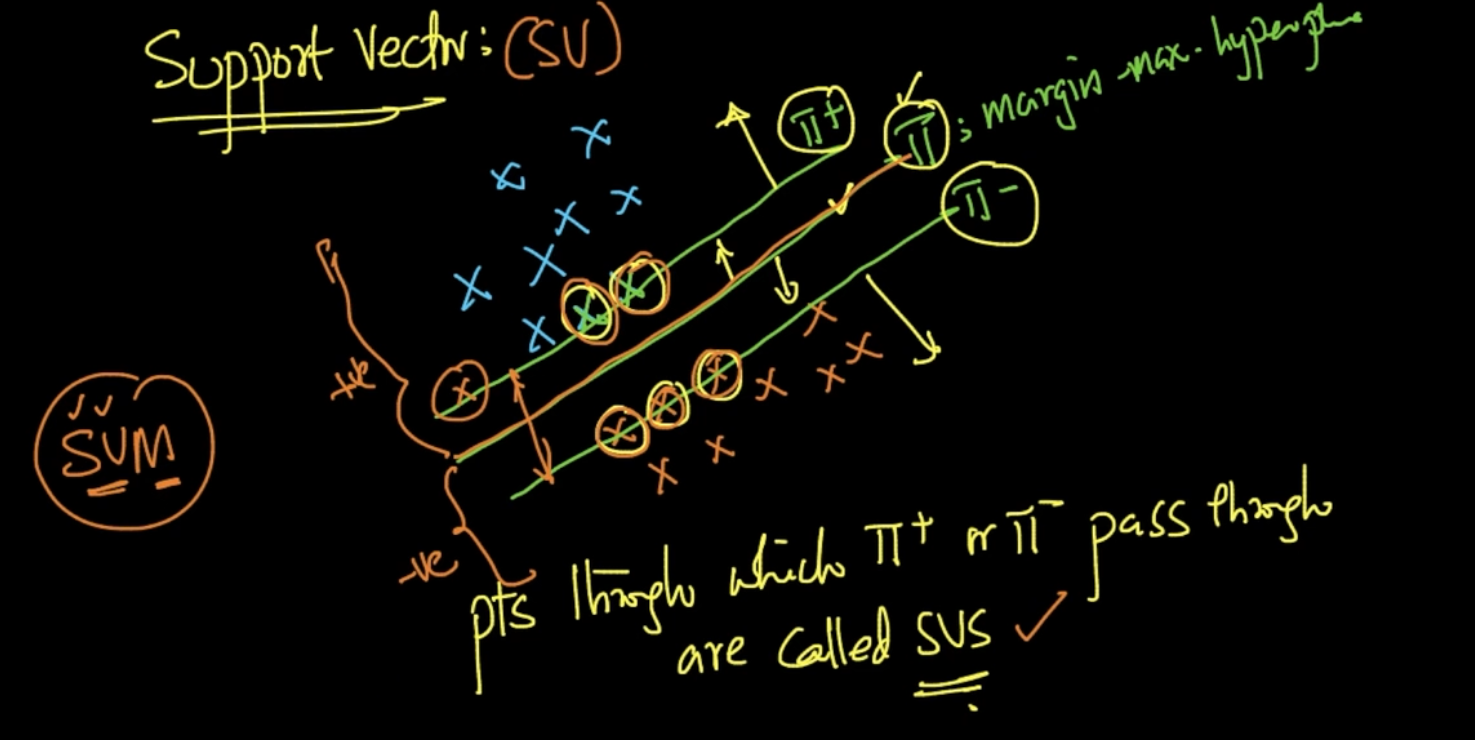 Support Vector: (SV)
π+
π : margin-max. hyperplane
π-
+ve
SVM
-ve
pts through which π+ or π- pass through
are called SVS